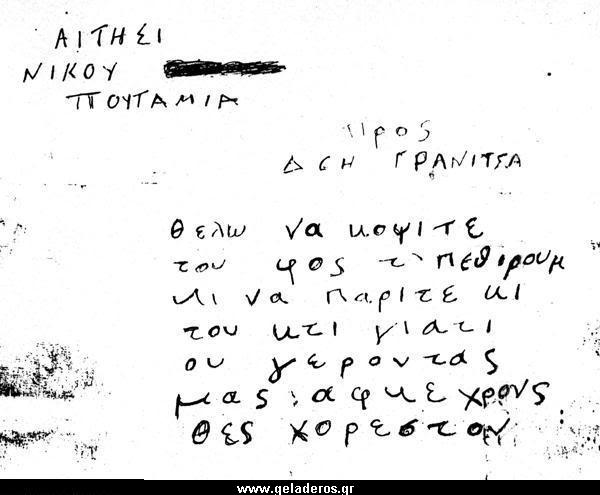 ΑΙΤΗΣΙ
ΝΙΚΟΥ
ΠΟΥΤΑΜΙΑ
Προς
ΔΕΗ ΓΡΑΝΙΤΣΑ
θελω να κοψιτε
του φος τ' πεθιρουμ
κι να παριτε κι
του κτι γιατι
ου γεροντας
μας αφκε χρονς
θες χορεστον
www.geladeros.gr